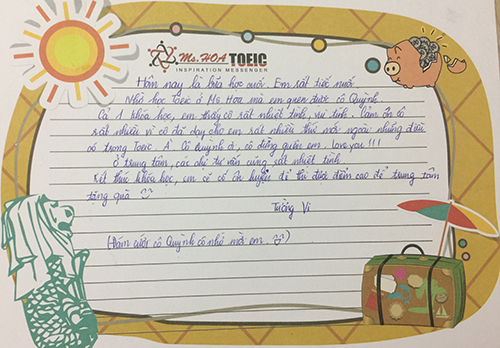 Ms. HOA TOEIC
INSPIRATION MESSENGER
Hôm nay là bữa học cuối. Em rất tiếc nuối.
Nhờ học Toeic ở Ms Hoa mà em quen được cô Quỳnh
Cả 1 khóa học, em thấy cô rất nhiệt tình, vui tính. Cảm ơn cô
rất nhiều vì cô đã dạy cho em rất nhiều thứ mới ngoài những điều
có trong Toeic. À cô Quỳnh ơi, cô đồng quê em. Love you!!!
Ở trung tâm, các chị tư vấn cũng rất nhiệt tình.
Kết thúc khóa học, em sẽ cố ôn luyện để thi được điểm cao để trung tâm
tặng quà
Tường Vi
(Đám cưới cô Quỳnh cô nhớ mời em)